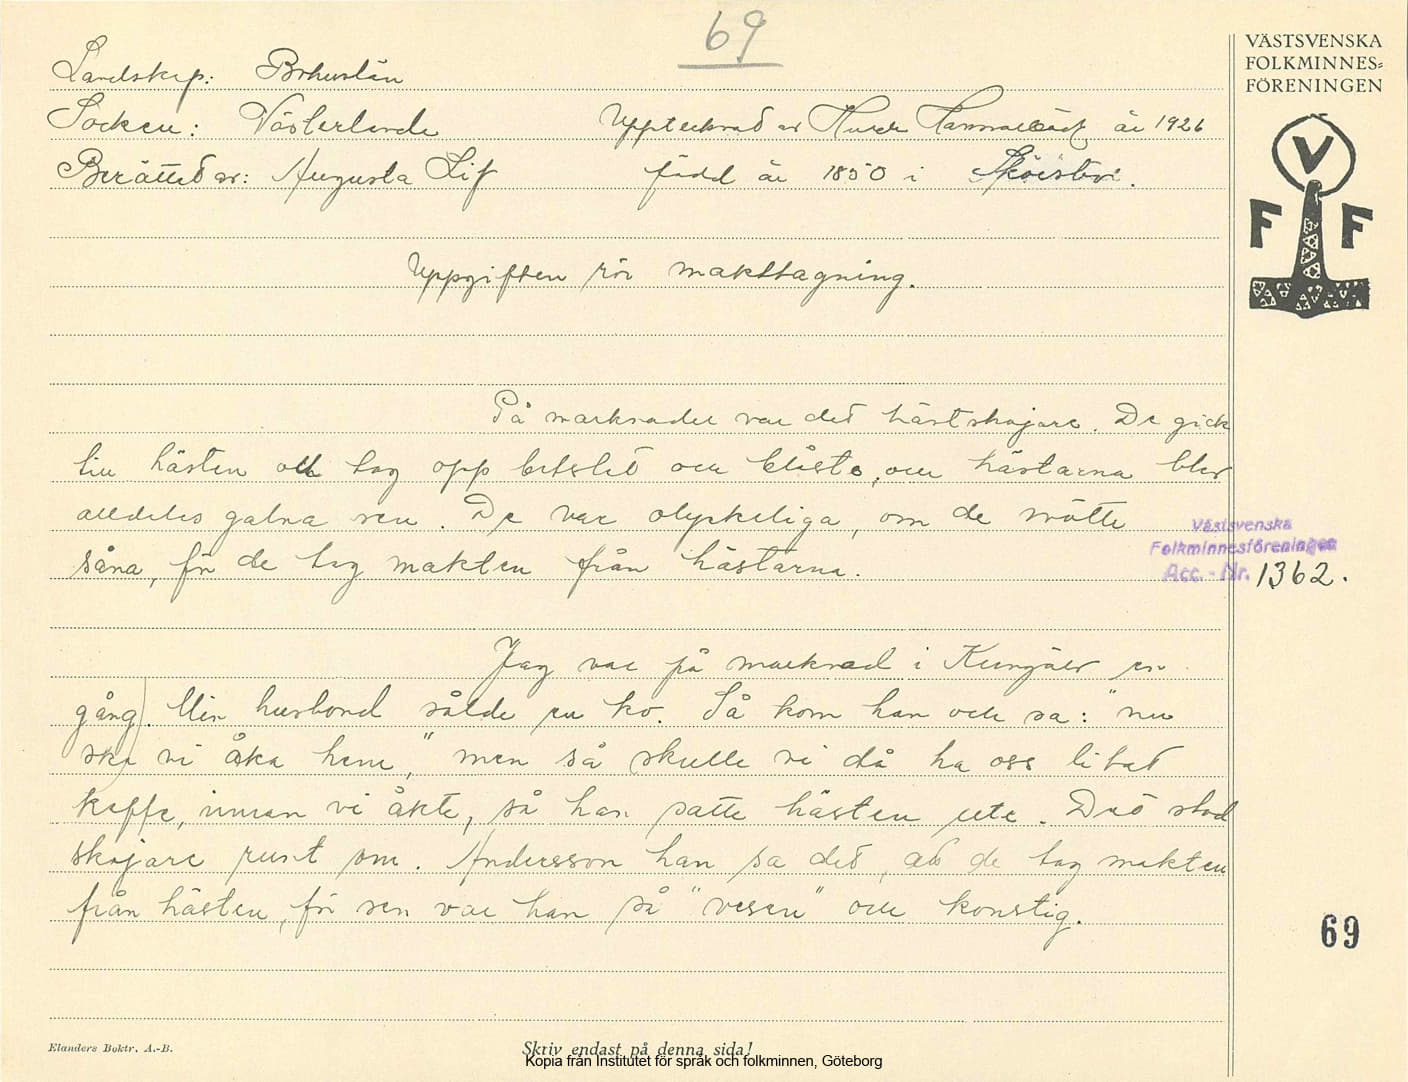 69
VÄSTSVENSKA
FOLKMINNES=
FÖRENINGEN
Landskap: Bohuslän
Socken: Västerlanda Upptecknad av år 1926
Berättad av: Augusta Lif född år 1850 i
V
F F
Uppgiften rör makttagning.
På marknader var det hästskojare. De gick
till hästen och tog opp betslet och blåste, och hästarna blev
alldeles galna sen. De var olyckeliga, om de mötte
såna, för de tog makten från hästarna.
Västsvenska
Folkminnesföreningen
Acc. - Nr. 1362.
Jag var på marknad i Kungälv en
gång. Min husbond sålde en ko. Så kom han och sa: "nu
ska vi åka hem," men så skulle vi då ha oss litat
kaffe, innan vi åkte, så han satte hästen ute. Det stod
skojare runt om. Andersson han sa det, att de tog makten
från hästen, för sen var han så "vesen" och konstig.
69
Elanders Boktr. A.-B.
Skriv endast på denna sida!
Kopia från Institutet för språk och folkminnen, Göteborg